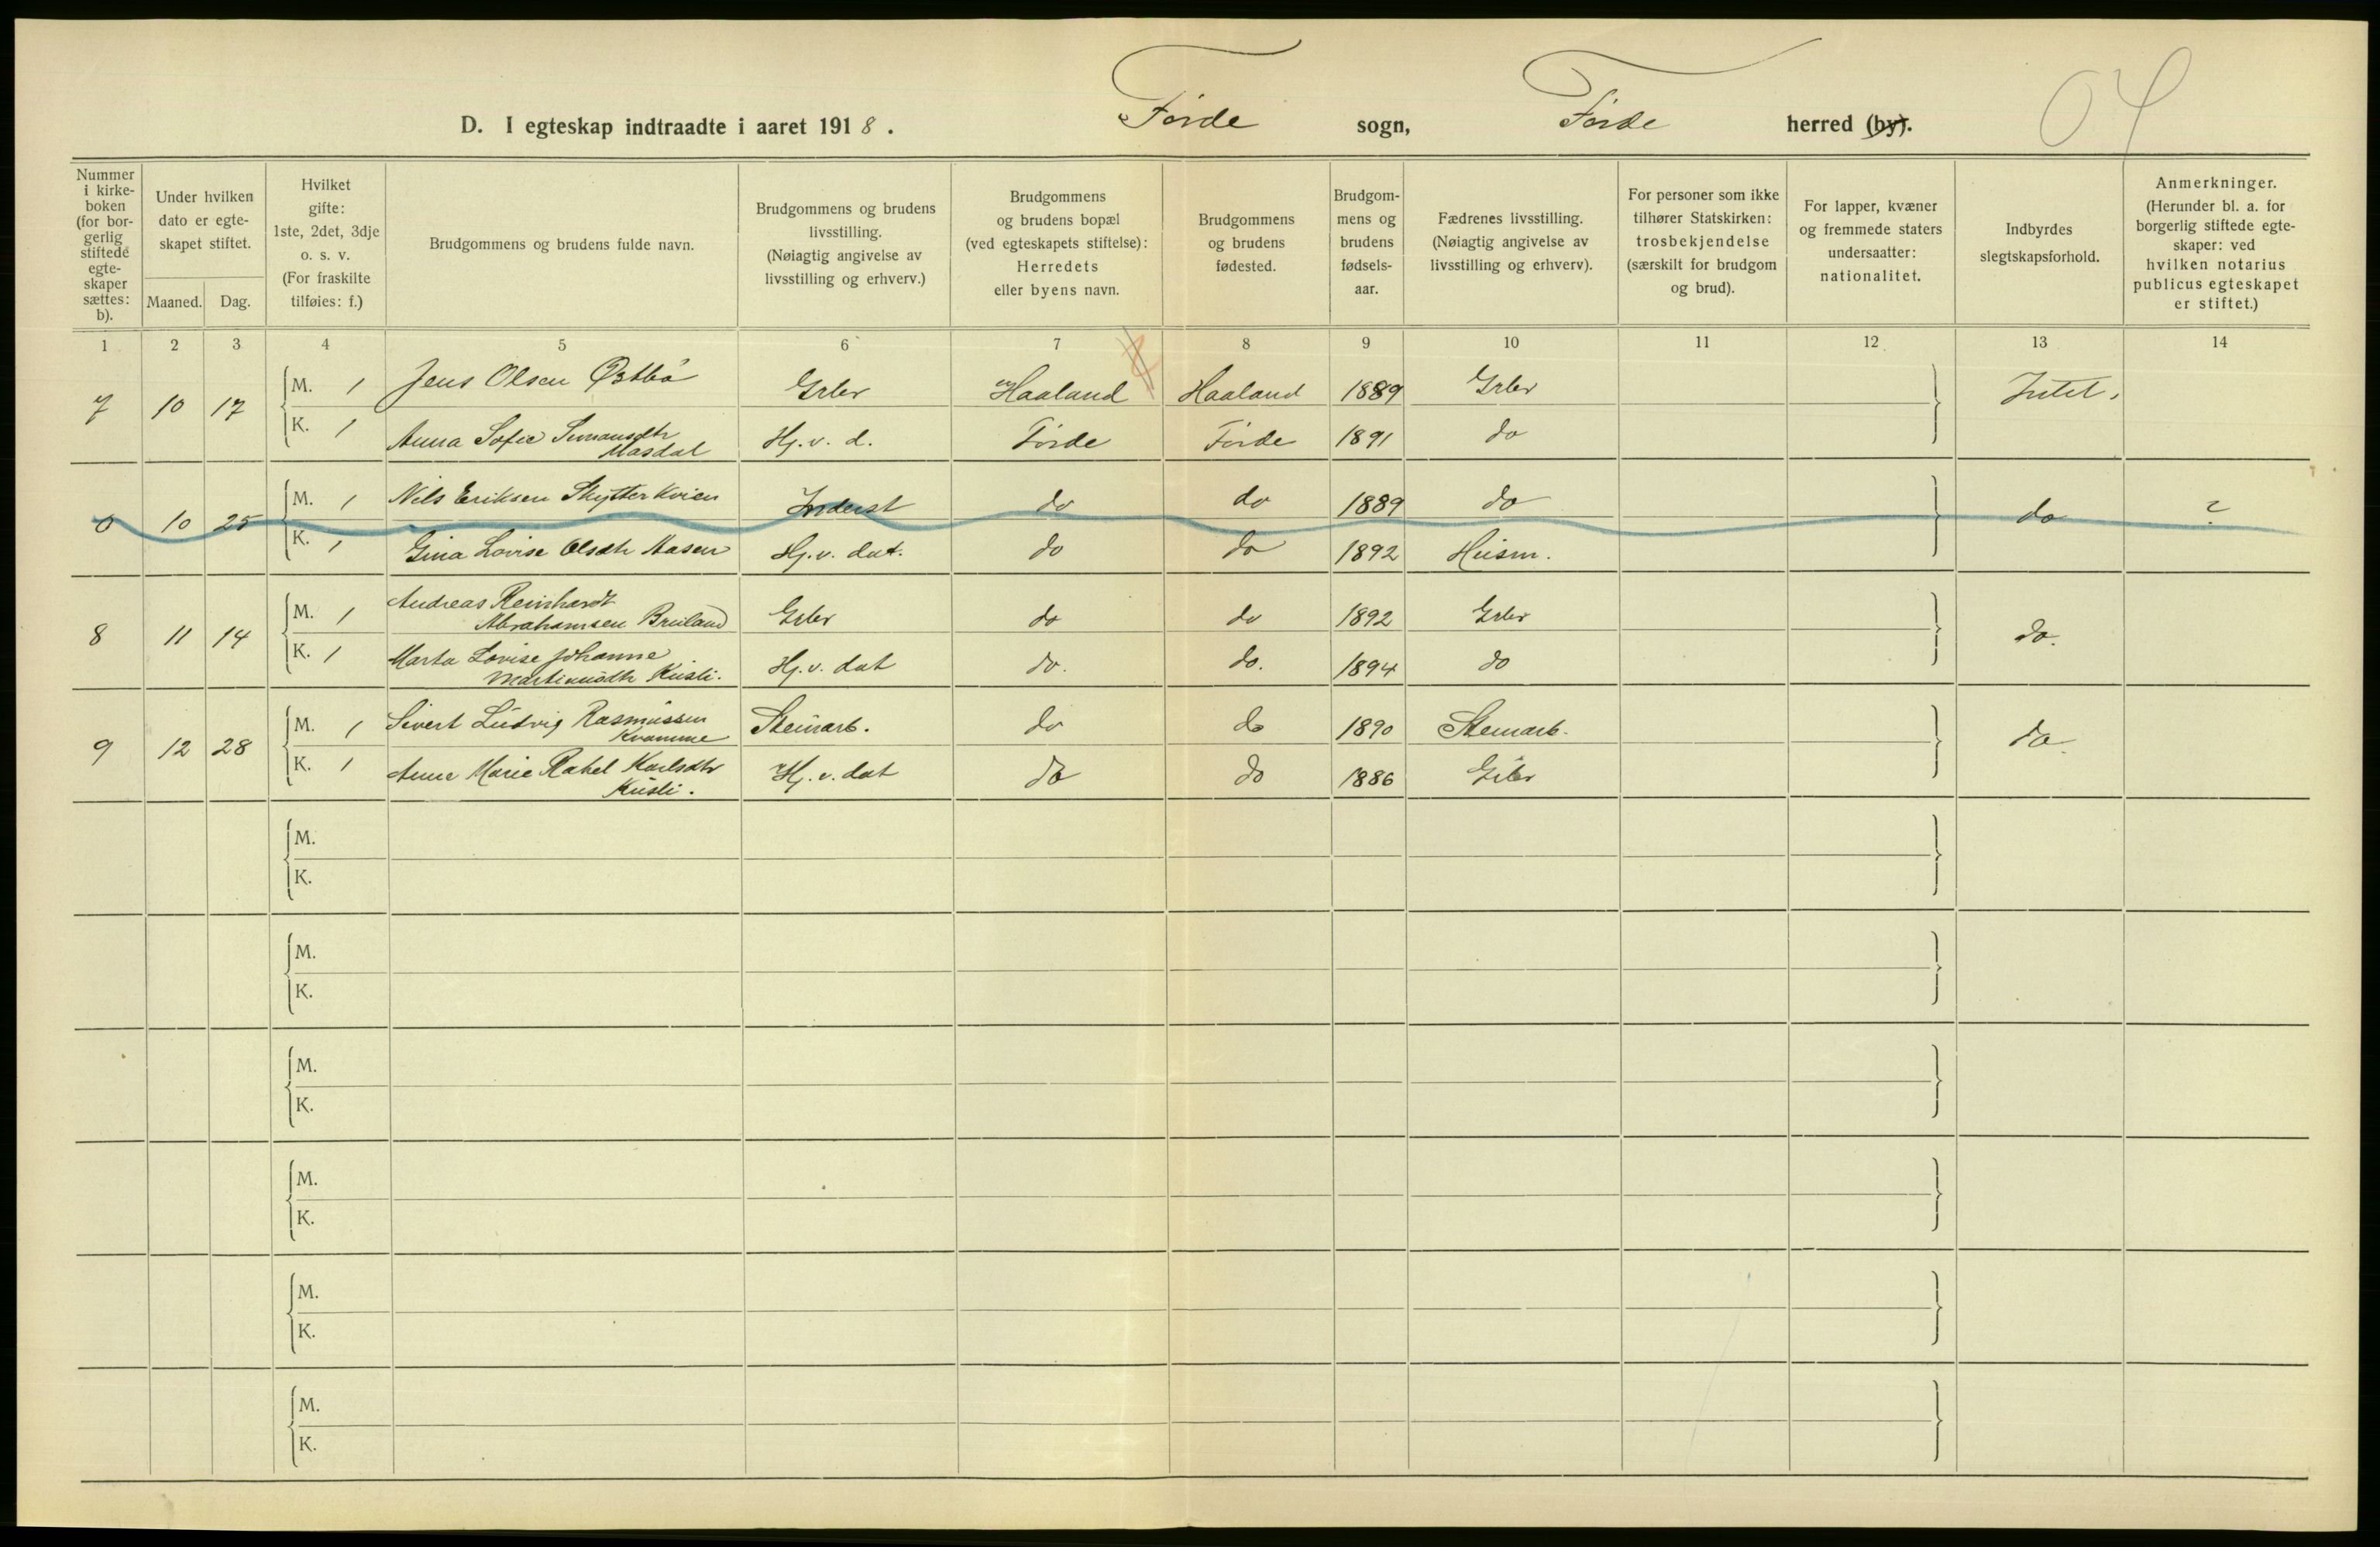 D. I egteskap indtraadte i aaret 1918. Førde sogn, Førde herred (by).
Nummer i kirke-boken (for bor-gerlig stiftede egte-skaper sættes: b).
Under hvilken dato er egte-skapet stiftet.
Maaned. Dag.
Hvilket gifte: 1ste, 2det, 3dje o. s. v. (For fraskilte tilføies: f.)
Brudgommens og brudens fulde navn.
Brudgommens og brudens livsstilling. (Nøiagtig angivelse av livsstilling og erhverv.)
Brudgommens og brudens bopæl (ved egteskapets stiftelse): Herredets eller byens navn.
Brudgommens og brudens fødested.
Brudgom-mens og brudens fødsels-aar.
Fædrenes livsstilling. (Nøiagtig angivelse av livsstilling og erhverv).
For personer som ikke tilhører Statskirken: trosbekjendelse (særskilt for brudgom og brud).
For lapper, kvæner og fremmede staters undersaatter: nationalitet.
Indbyrdes slegtskapsforhold.
Anmerkninger. (Herunder bl. a. for borgerlig stiftede egte-skaper: ved hvilken notarius publicus egteskapet er stiftet.)
1 2 3 4 5 6 7 8 9 10 11 12 13 14
7 10 17 M. 1 Jens Olsen Østbö Grbr Haaland Haaland 1889 Grbr Intet.
K. 1 Anna Sofie Simonsdtr Masdal Hj. v. d. Førde Førde 1891 do
0 10 25 M. 1 Nils Eriksen Skytterkvien Inderst do do 1889 do do ?
K. 1 Gina Lovise Olsdtr Masen Hj. v. dat. do do 1892 Husm.
8 11 14 M. 1 Andreas Reinhardt Abrahamsen Bruland Grbr do do 1892 Grbr do.
K. 1 Marta Lovise Johanne Martinusdtr Kusli. Hj. v. dat do. do. 1894 do
9 12 28 M. 1 Sivert Ludvig Rasmussen Kvamme Steinarb. do do 1890 Steinarb. do.
K. 1 Anne Marie Rakel Karlsdtr Kusli. Hj. v. dat do do 1886 Grbr
M.
K.
M.
K.
M.
K.
M.
K.
M.
K.
M.
K.